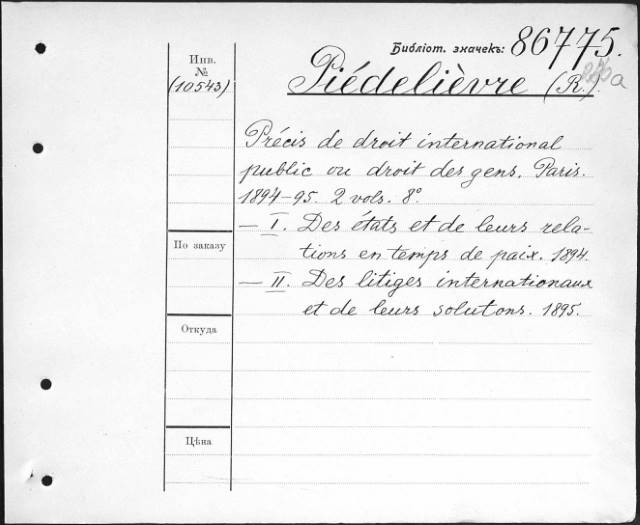 Библіот. значекъ: 86775.
Инв.
№
(10543)
Piédelièvre (R.).
Précis de droit international
public ou droit des gens. Paris.
1894-95. 2 vols. 8°
— I. Des états et de leurs rela-
tions en temps de paix. 1894.
— II. Des litiges internationaux
et de leurs solutons. 1895.
По заказу
Откуда
Цѣна